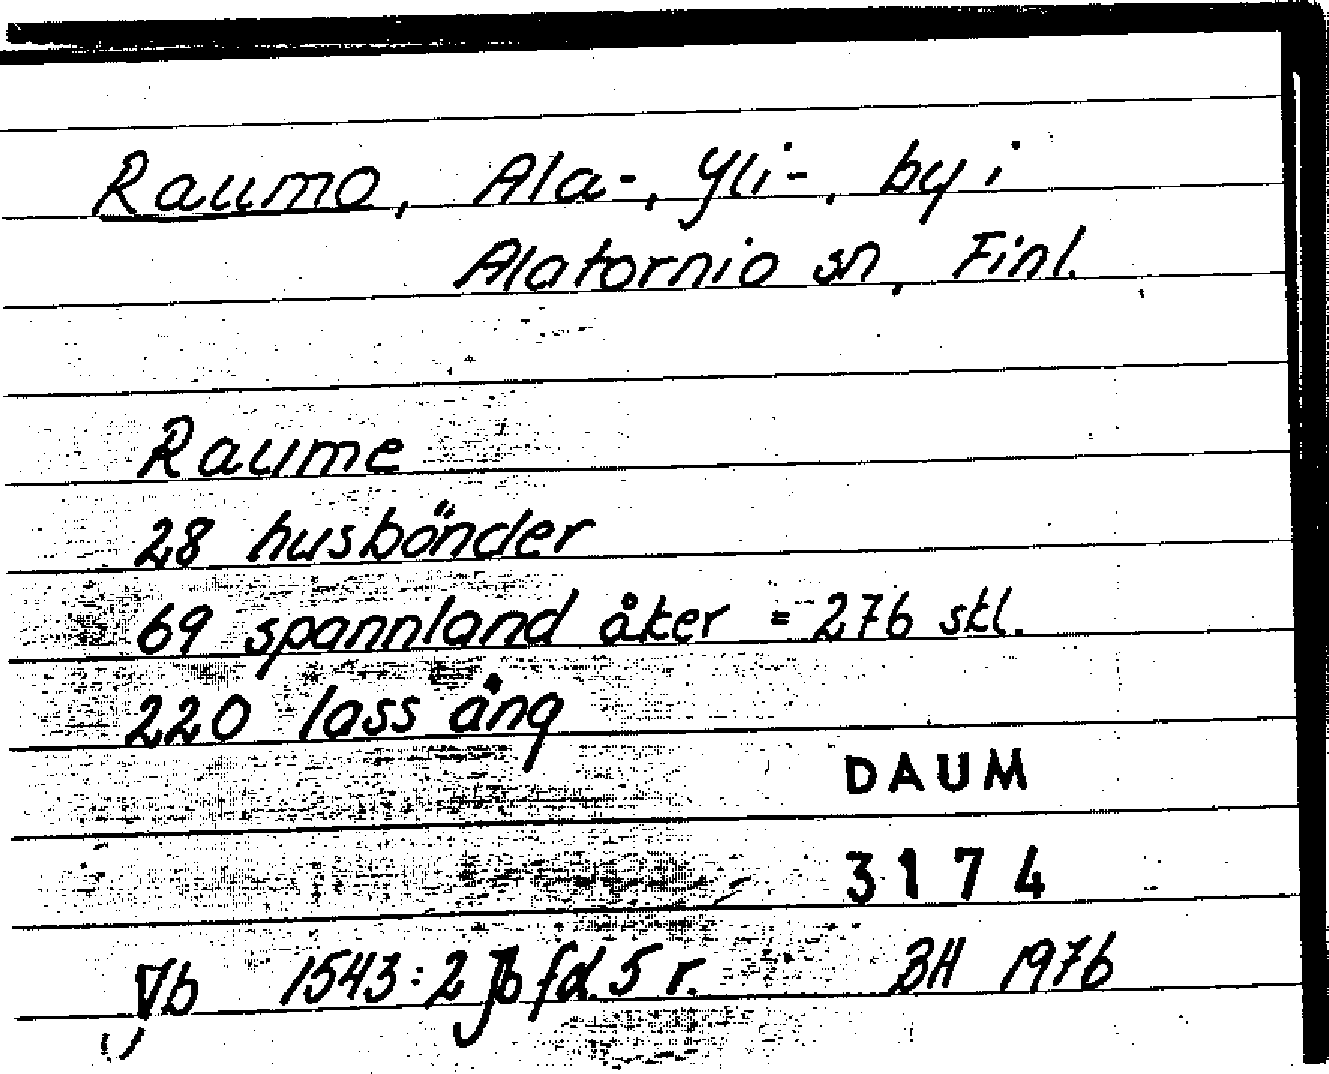 Raumo, Ala-, Yli-, by i
Alatornio sn, Finl.
Raume
28 husbönder
69 spannland åker = 276 skl.
220 lass äng
DAUM
3174
Jb 1543:2 Jb fol. 5 r. BH 1976